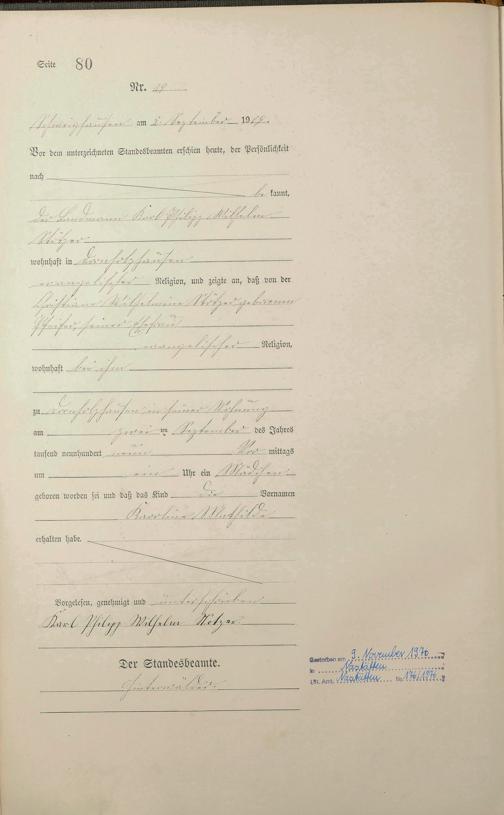 Seite 80
Nr. 49
Schweighausen am 2. September 1909.
Vor dem unterzeichneten Standesbeamten erschien heute, der Persönlichkeit
nach
be kannt,
der Landmann Karl Philipp Wilhelm
Nötzer
wohnhaft in Dornholzhausen
evangelischer Religion, und zeigte an, daß von der
Christiane Wilhelmine Nötzer geborenen
Pfeifer, seiner Ehefrau
evangelischer Religion,
wohnhaft bei ihm
zu Dornholzhausen in seiner Wohnung
am zwei ten September des Jahres
tausend neunhundert neun Vor mittags
um ein Uhr ein Mädchen
geboren worden sei und daß das Kind die Vornamen
Karoline Mathilde
erhalten habe.
Vorgelesen, genehmigt und unterschrieben
Karl Philipp Wilhelm Nötzer
Der Standesbeamte.
Hinterwälder
Gestorben am 9. November 1976
in Nastätten
St. Amt. Nastätten No 176/1976